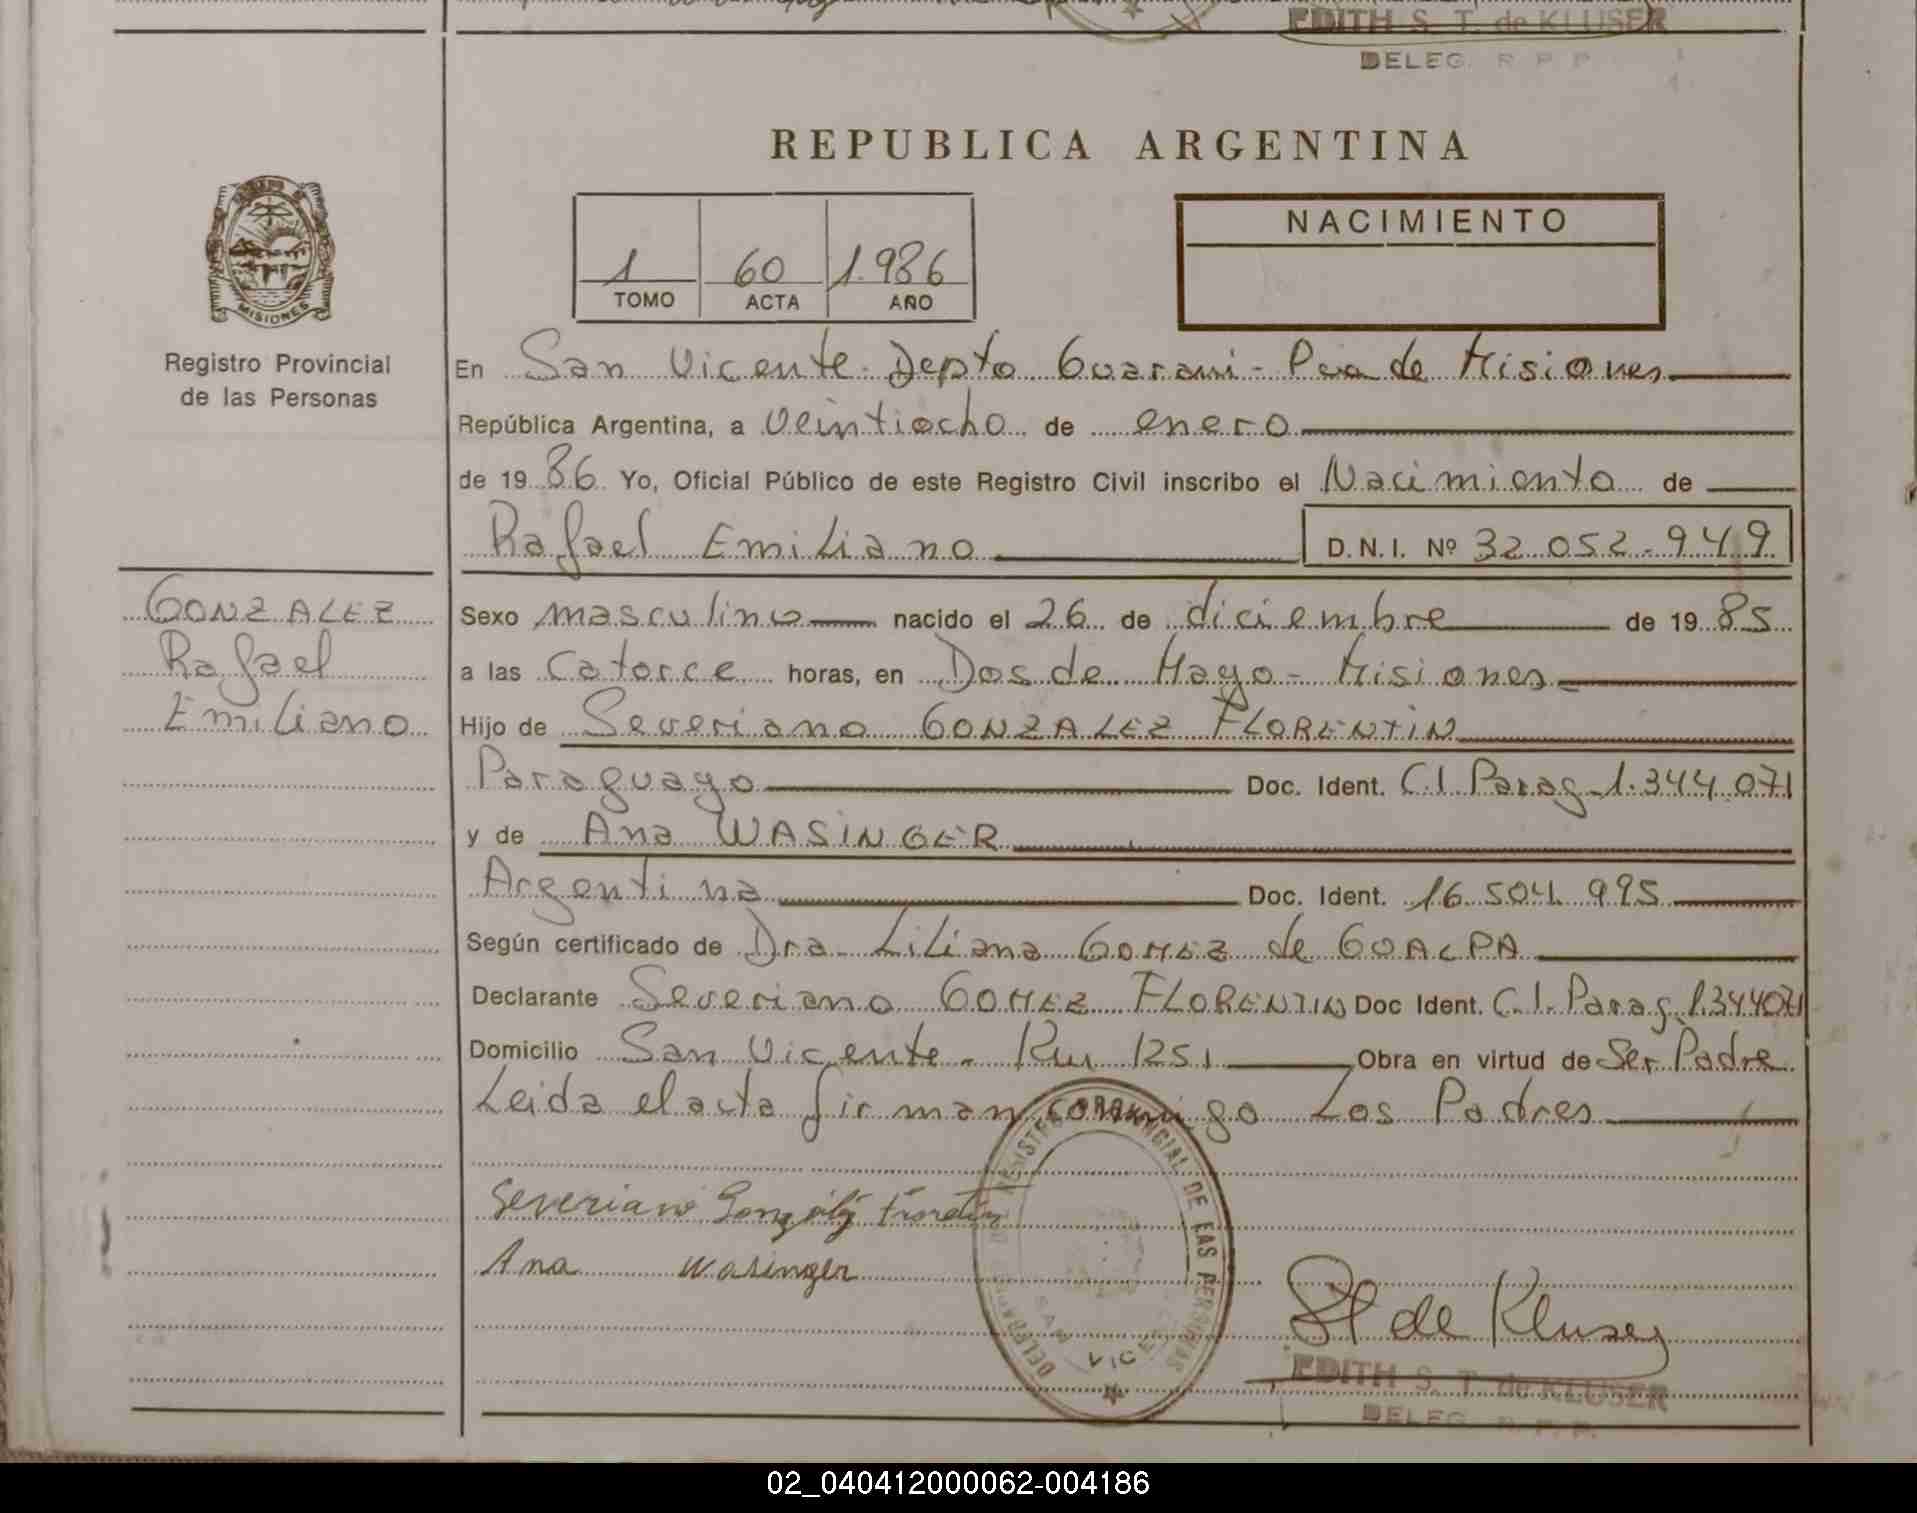 EDITH S. T. de KLUSER
DELEG. R. P. P.
REPUBLICA ARGENTINA
MISIONES
Registro Provincial
de las Personas
1 60 1.986
TOMO ACTA AÑO
NACIMIENTO
En San Vicente - Depto Guarani - Pcia de Misiones
República Argentina, a veintiocho de enero
de 19 86 Yo, Oficial Público de este Registro Civil inscribo el Nacimiento de
Rafael Emiliano D.N.I. Nº 32.052.949
GONZALEZ
Rafael
Emiliano
Sexo masculino nacido el 26 de diciembre de 19 85
a las Catorce horas, en Dos de Mayo - Misiones
Hijo de Severiano GONZALEZ FLORENTIN
Paraguayo Doc. Ident. C.I. Parag. 1.344.071
y de Ana WASINGER
Argentina Doc. Ident. 16.504.995
Según certificado de Dra. Liliana GOMEZ de GUALPA
Declarante Severiano GOMEZ FLORENTIN Doc Ident. C.I. Parag. 1.344071
Domicilio San Vicente - Km 1251 Obra en virtud de Ser Padre
Leida el acta firman conmigo Los Padres
Severiano Gonzalez Florentin
Ana Wasinger
DELEGACION REGISTRO PROVINCIAL DE LAS PERSONAS
SAN VICENTE
St de Kluser
EDITH S. T. de KLUSER
DELEG. R. P. P.
02_040412000062-004186